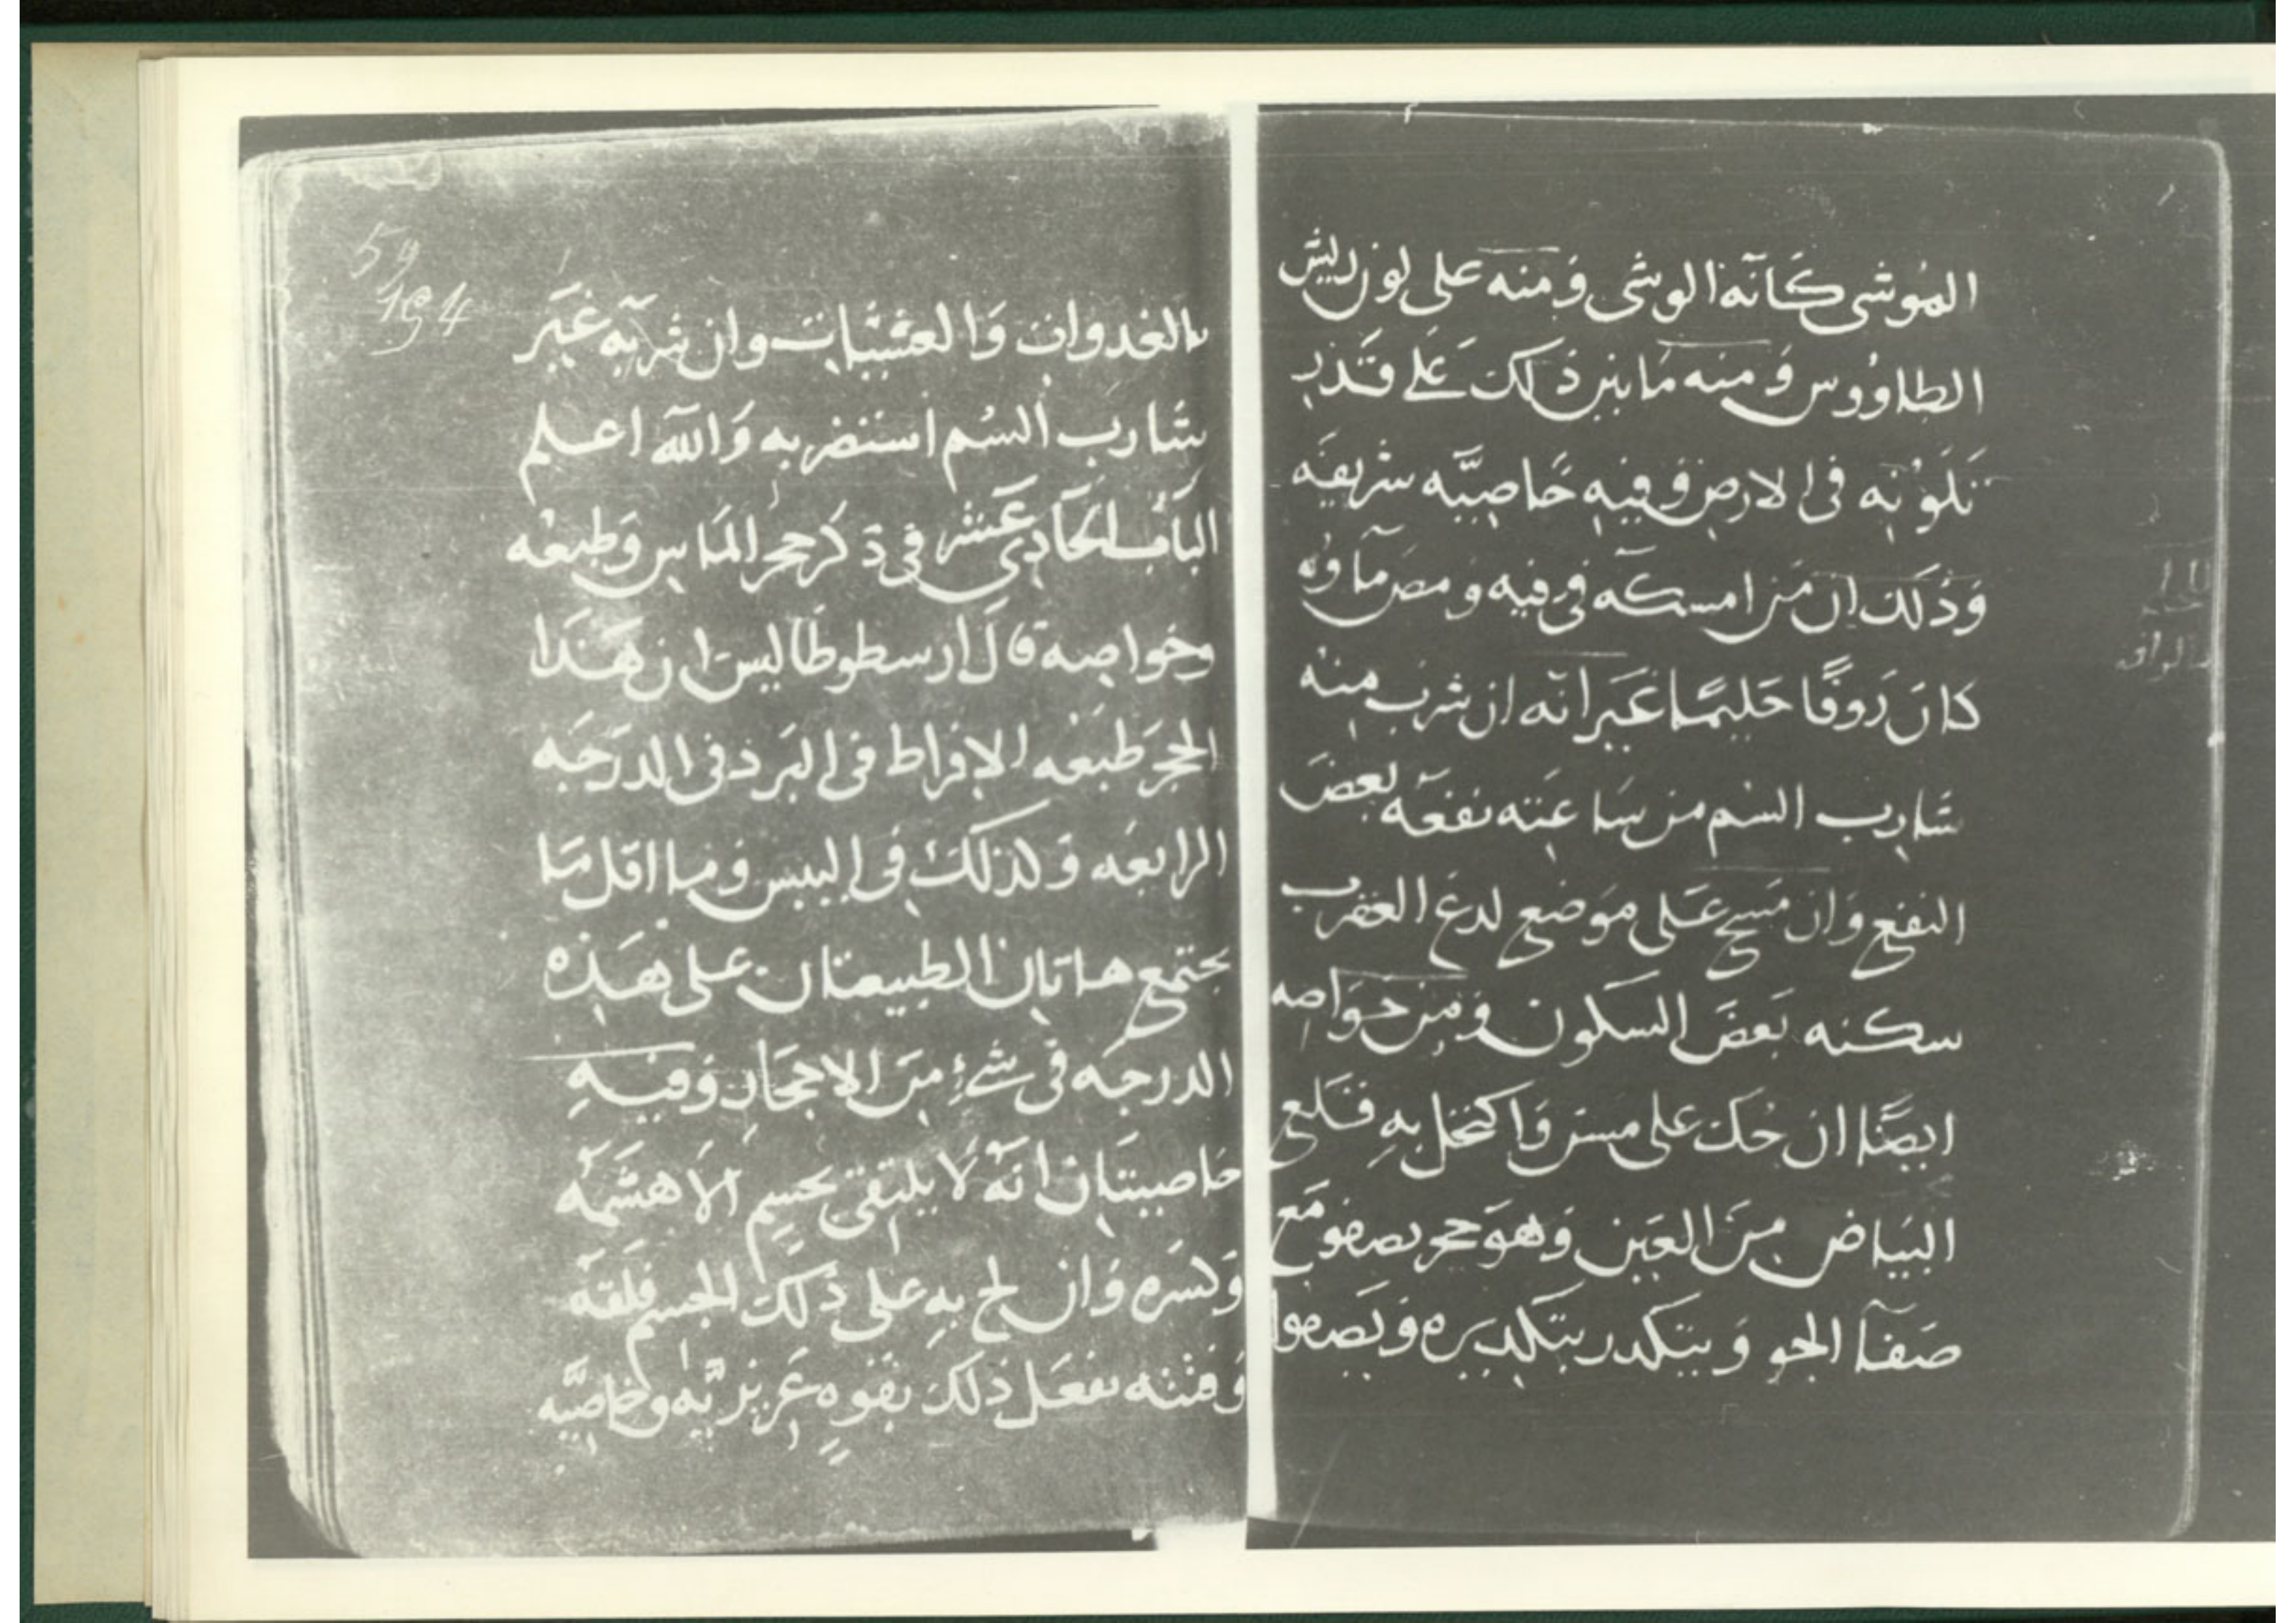 الموشى كَانَه الوشى وَمنه على لون ريش
الطاوُوس وَمنه مَا بين ذَلك عَلى قَدر
تَلَوُّنِه فى الارض وَفيه خَاصِيَّه شريفَه
وَذَلكَ ان مَن امسكَه فى فيه وَمص مآوه
كانَ رَووفًا حَليمًا غَير انّه ان شرب منه
شَارب السُم من سَاعَته نفعَه بعضَ
النفع وَان مَسح عَلى مَوضع لدغ العقرب
سكنه بَعضَ السكون وَمن خَوَاصه
ايضًا ان حُكَ على مسَن وَاكتحل بهِ قَلع
البَيَاض مِنَ العَين وَهوَ حجر يصفو مَع
صَفآ الجو وَيتكدر بتَكديره وَيَصفوا
59
194
بالغدوات وَالعشيات وان شربَه غيَر
شَارب السُم استضر به وَالله اعلم
البَابُ الحَادِى عَشر فى ذكر حجر المَاس وَطبعُه
وخواصه قَالَ ارسطوطَاليس ان هَذا
الحجَر طَبعُه الافراط فى البَرد فى الدرَجَه
الرابعَه وَكذلكَ فى اليبس وَمَا اقَل مَا
يجتمع هاتان الطبيعتان على هَذه
الدرجَه فى شَئٍ مِنَ الاحجَار وَفيه
خاصيتَان انَّه لَا يلتقى بجسِم الَا هشَمَه
وَكسَره وَان لح بهِ على ذَلكَ الجسم فلَقَه
وَفتته يفعَل ذَلكَ بقوهٍ غَريزيّه وخاصِيَّه